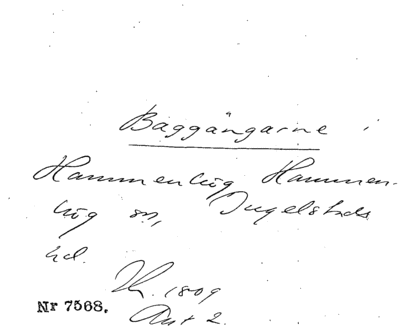 Baggängarne i
Hammenhög Hammen-
hög sn, Ingelstads
hd.
Th. 1809
Ant 2.
Nr 7568.